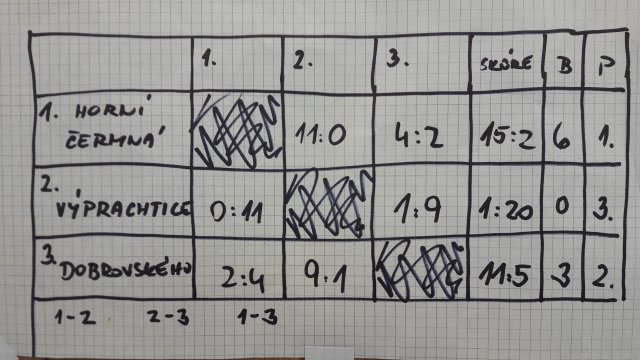 1. 2. 3. SKÓRE B P
1. HORNÍ
ČERMNÁ 11:0 4:2 15:2 6 1.
2.
VÝPRACHTICE 0:11 1:9 1:20 0 3.
3. DOBROVSKÉHO 2:4 9:1 11:5 3 2.
1-2 2-3 1-3